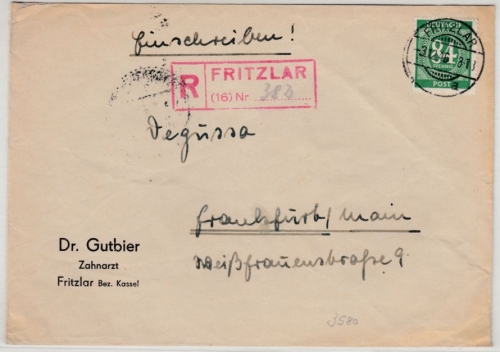 Einschreiben!
FRITZLAR
DEUTSCHE
84
PFENNIG
POST
R FRITZLAR
(16) Nr 383
Degussa
Frankfurt/Main
Weißfrauenstraße 9.
Dr. Gutbier
Zahnarzt
Fritzlar Bez. Kassel
3580